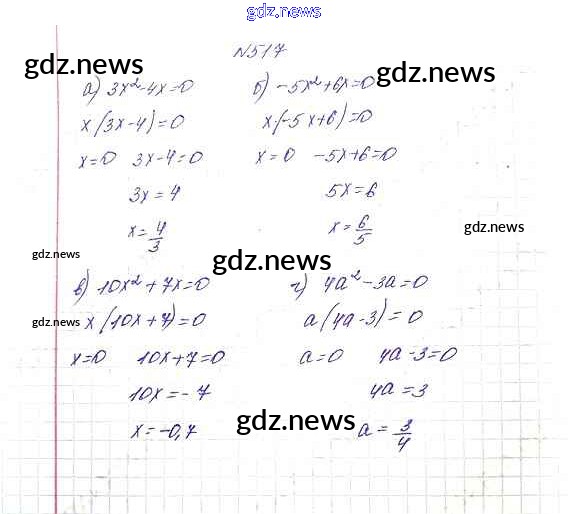 gdz.news
N517
gdz.news
gdz.news
а) 3x²-4x=0
x(3x-4)=0
x=0 3x-4=0
3x=4
x=4/3
б) -5x²+6x=0
x(-5x+6)=0
x=0 -5x+6=0
5x=6
x=6/5
gdz.news
gdz.news
gdz.news
в) 10x²+7x=0
x(10x+7)=0
x=0 10x+7=0
10x=-7
x=-0,7
г) 4a²-3a=0
a(4a-3)=0
a=0 4a-3=0
4a=3
a=3/4
gdz.news
gdz.news
gdz.news
gdz.news